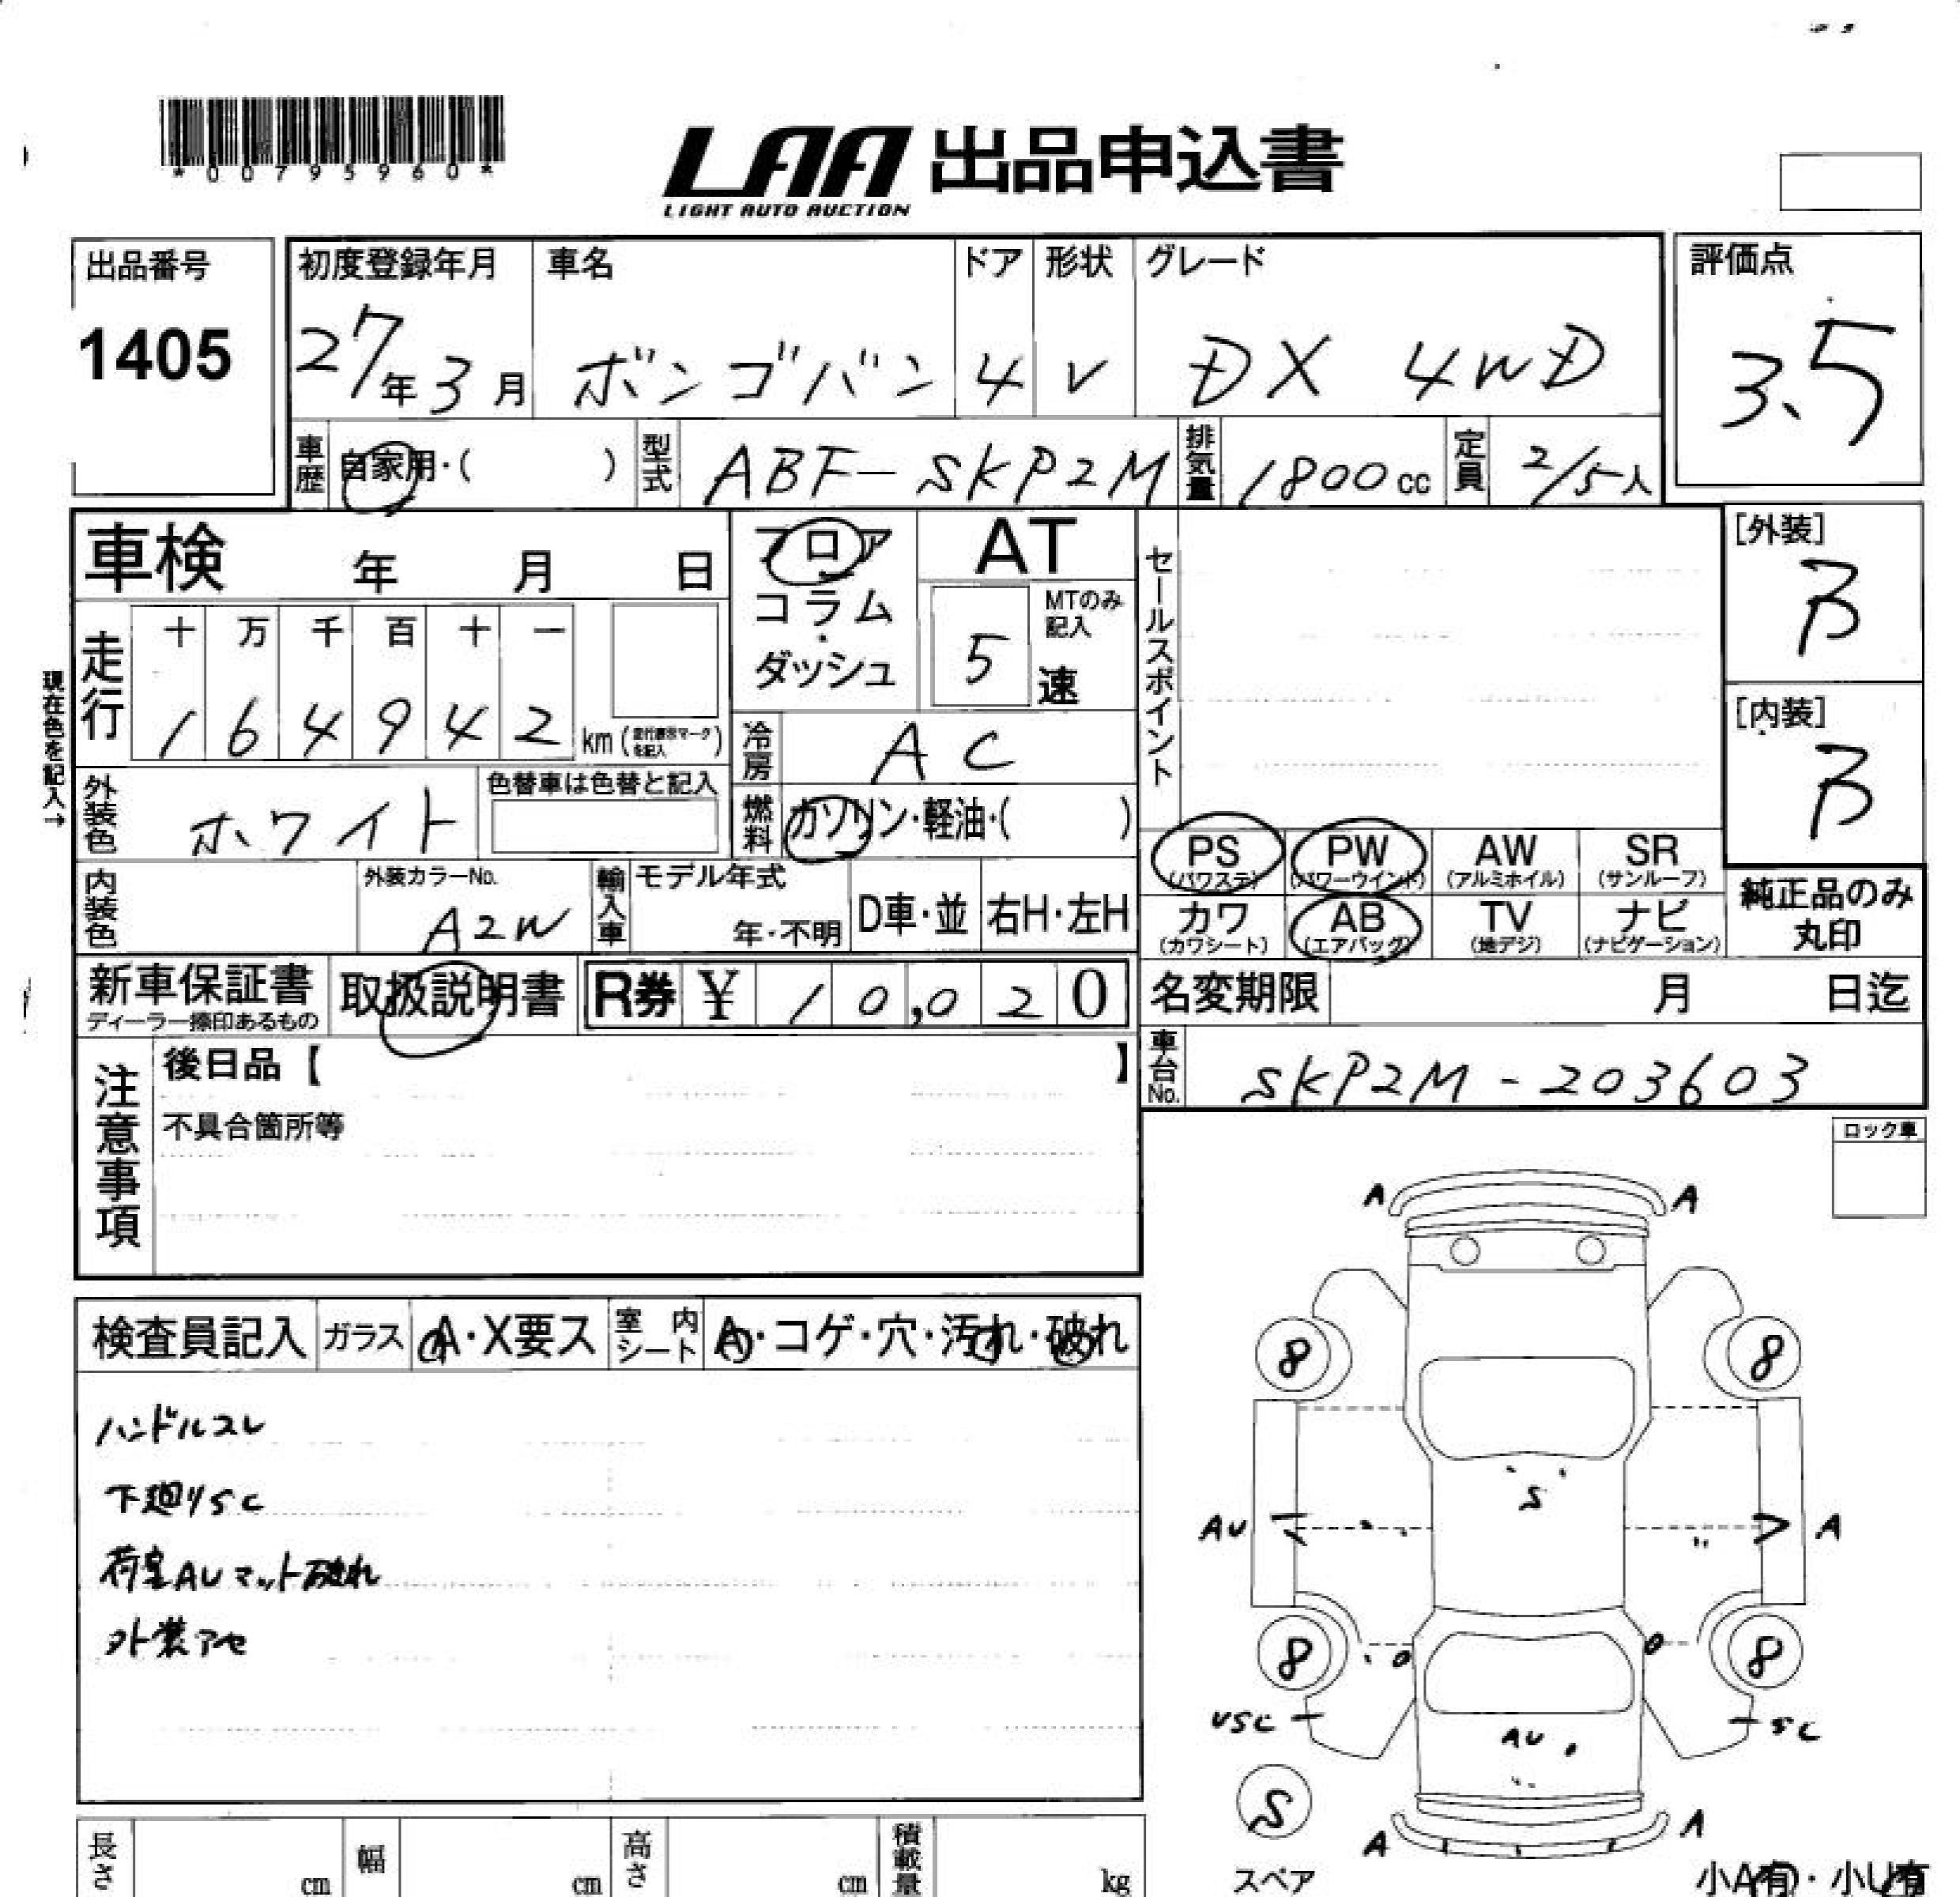 *00795960*
LAA 出品申込書
LIGHT AUTO AUCTION
出品番号
1405
初度登録年月
27年3月
車名
ボンゴバン
ドア
4
形状
V
グレード
DX 4WD
評価点
3.5
車歴
自家用・( )
型式
ABF-SKP2M
排気量
1800cc
定員
2/5人
車検 年 月 日
フロア
コラム
・
ダッシュ
AT
5
MTのみ記入
速
セールスポイント
[外装]
B
[内装]
B
現在色を記入→
走行
十 万 千 百 十 一
1 6 4 9 4 2 km
冷房
AC
外装色
ホワイト
色替車は色替と記入
燃料
ガソリン・軽油・( )
PS
(パワステ)
PW
(パワーウインド)
AW
(アルミホイル)
SR
(サンルーフ)
内装色
外装カラーNo.
A2W
輸入車
モデル年式
年・不明
D車・並
右H・左H
カワ
(カワシート)
AB
(エアバッグ)
TV
(地デジ)
ナビ
(ナビゲーション)
純正品のみ
丸印
新車保証書
ディーラー捺印あるもの
取扱説明書
R券 ¥ 10,020
名変期限 月 日迄
注意事項
後日品【 】
不具合箇所等
車台No.
SKP2M-203603
ロック車
検査員記入
ガラス
A・X要ス
室内シート
A・コゲ・穴・汚れ・破れ
ハンドルスレ
下廻りSC
荷室AUマット破れ
外装アセ
A A
8 8
S
AU A
8 8
USC SC
AU
S
スペア
A A
小A有・小U有
長さ cm
幅 cm
高さ cm
積載量 kg